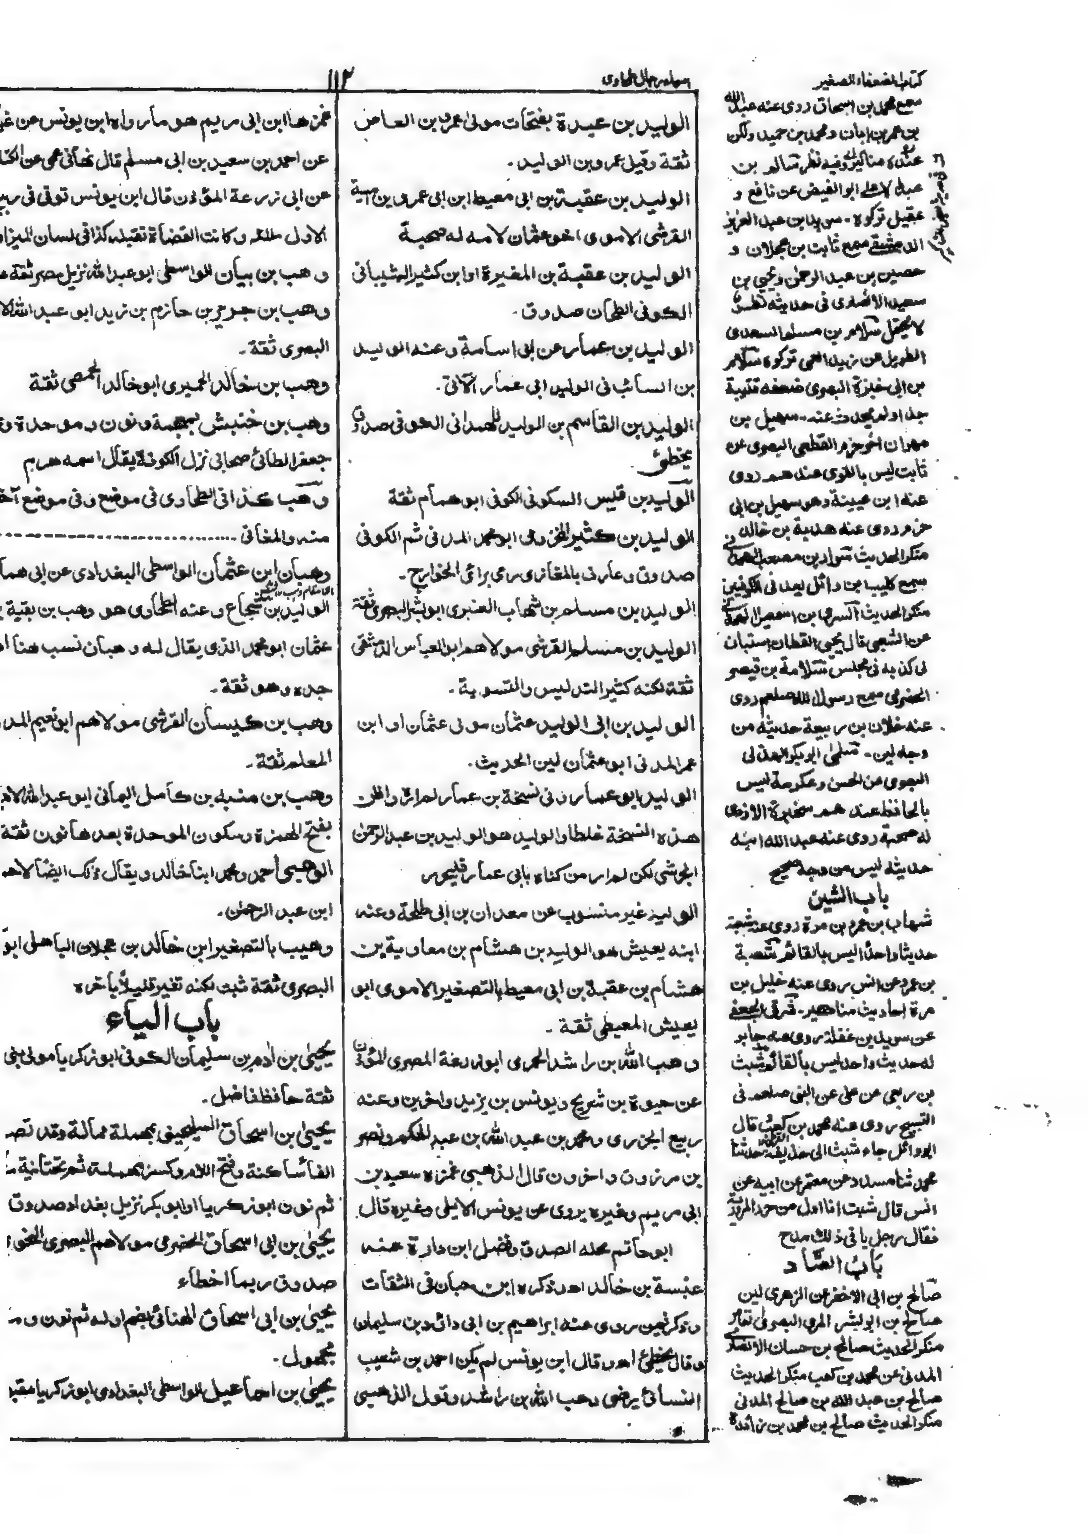 كتاب الضعفاء الصغير
اسماء رجال طحاوى
١١٢
سمع محمد بن اسحاق روى عنه عبد الله
بن عمر بن ابان ومحمد بن حميد ولكن
عبد الاعلى ابو الفيض عن نافع و
الدمشقى سمع ثابت بن عجلان و
حصين بن عبد الرحمن ويحيى بن
سعيد الانصارى فى حديثه نظر
لا يحتمل سلام بن مسلم السعدى
الطويل عن زيد العمى تركوه سلام
بن ابى خبزة البصرى ضعفه قتيبة
جدا ولم يحدث عنه۔ سهيل بن
مهران اخو حزم القطعى البصرى عن
ثابت ليس بالقوى عندهم روى
عنه ابن عيينة وهو سهيل بن ابى
حزم روى عنه هدبة بن خالد
منكر الحديث سوار بن مصعب الهمدانى
سمع كليب بن وائل يعد فى الكوفيين
منكر الحديث السرى بن اسمعيل
عن الشعبى قال يحيى القطان استبان
لى كذبه فى مجلس سلامة بن قيصر
الحضرمى سمع رسول الله صلعم روى
عنه حديثه من
وجه لين۔ سلمى ابو بكر الهذلى
البصرى عن الحسن وعكرمة ليس
بالحافظ عندهم سخبرة الازدى
له صحبة روى عنه عبد الله ابنه
حديثه ليس من وجه صحيح
باب الشين
شهاب بن عمرو بن مرة روى عنه شعبة
حديثا واحدا ليس بالقائم شعبة
بن عمرو عن انس روى عنه خليل بن
مرة احاديث مناكير۔ شرقى الجعفى
عن سويد بن غفلة روى عنه جابر
له حديث واحد ليس بالقائم شبث
بن ربعى عن على عن النبى صلعم فى
التسبيح روى عنه محمد بن كعب قال
ابو وائل جاء شبث الى حذيفة حدثنا
محمد ثنا مسدد عن معتمر عن ابيه عن
انس قال شبث انا اول من حرر الحرورية
فقال رجل ما فى ذلك مدح
باب الصاد
صالح بن ابى الاخضر عن الزهرى لين
صالح بن ابو بشر المرى البصرى
منكر الحديث صالح بن حسان الانصارى
المدنى عن محمد بن كعب منكر الحديث
صالح بن عبد الله بن صالح المدنى
منكر الحديث صالح بن محمد بن زائدة
الوليد بن عبدة بفتحات مولى عمرو بن العاص
ثقة وقيل عمرو بن الوليد۔
الوليد بن عقبة بن ابى معيط ابن ابى عمرو بن امية
القرشى الاموى اخو عثمان لامه له صحبة
الوليد بن عقبة بن المغيرة او ابن كثير الشيبانى
الكوفى الطحان صدوق۔
الوليد بن عمار عن ابى اسامة وعنه الوليد
بن السائب فى الوليد ابى عمار الآتى۔
الوليد بن القاسم بن الوليد الهمدانى الكوفى صدوق
يخطئ
الوليد بن قيس السكونى الكوفى ابو همام ثقة
الوليد بن كثير المخزومى ابو محمد المدنى ثم الكوفى
صدوق وعارف بالمغازى رمى برأى الخوارج۔
الوليد بن مسلم بن شهاب العنبرى ابو بشر البصرى ثقة
الوليد بن مسلم القرشى مولاهم ابو العباس الدمشقى
ثقة لكنه كثير التدليس والتسوية۔
الوليد بن ابى الوليد عثمان مولى عثمان او ابن
عمر المدنى ابو عثمان لين الحديث۔
الوليد ابو عمار وفى نسخة بن عمار لم اره واظن
هذه النسخة غلطا والوليد هو الوليد بن عبد الرحمن
الجرشى لكن لم ار من كناه بابى عمار فليحرر
الوليد غير منسوب عن معدان بن ابى طلحة وعنه
ابنه يعيش هو الوليد بن هشام بن معاوية بن
هشام بن عقبة بن ابى معيط بالتصغير الاموى ابو
يعيش المعيطى ثقة۔
وهب الله بن راشد الحجرى ابو زرعة المصرى المؤذن
عن حيوة بن شريح ويونس بن يزيد واخرين وعنه
ربيع الجيزى ومحمد بن عبد الله بن عبد الحكم ونصر
بن مرزوق واخرون قال الذهبى غمزه سعيد بن
ابى مريم وغيره يروى عن يونس الايلى وغيره قال
ابو حاتم محله الصدق وفضل ابن دارة عنه
عنبسة بن خالد اه وذكره ابن حبان فى الثقات
وذكر فيمن روى عنه ابراهيم بن ابى داؤد بن سليمان
وقال يخطئ اه وقال ابن يونس لم يكن احمد بن شعيب
النسائى يرضى وهب الله بن راشد وقول الذهبى
غمزه ابن ابى مريم هو ما رواه ابن يونس عن
عن احمد بن سعيد بن ابى مسلم قال نهانى عمى عن
عن ابى زرعة المؤذن قال ابن يونس توفى فى
الاول وكانت القضاة تقبله كذا فى لسان الميزان
وهب بن بيان الواسطى ابو عبد الله نزيل مصر ثقة
وهب بن جرير بن حازم بن زيد ابو عبد الله
البصرى ثقة۔
وهب بن خالد الحميرى ابو خالد الحمصى ثقة
وهب بن خنبش بمعجمة ونون وموحدة
جعفر الطائى صحابى نزل الكوفة يقال اسمه هرم
وهب كذا فى الطحاوى فى موضع وفى موضع
منه والمغانى
وهبان ابن عثمان الواسطى البغدادى عن ابى
الوليد بن شجاع وعنه الطحاوى هو وهب بن بقية
عثمان ابو محمد الذى يقال له وهبان نسب هنا
جده وهو ثقة۔
وهب بن كيسان القرشى مولاهم ابو نعيم
المعلم ثقة۔
وهب بن منبه بن كامل اليمانى ابو عبد الله
بفتح الهمزة وسكون الموحدة بعدها نون ثقة
الوهبى احمد ومحمد ابنا خالد ويقال ذلك ايضا
ابن عبد الرحمن۔
وهيب بالتصغير ابن خالد بن عجلان الباهلى
البصرى ثقة ثبت لكنه تغير قليلا بآخره
باب الياء
يحيى بن ادم بن سليمان الكوفى ابو زكريا مولى بنى
ثقة حافظ فاضل۔
يحيى بن اسحاق السيلحينى بمهملة ممالة وقد تصير
الفا ساكنة وفتح اللام وكسر مهملة ثم تحتانية
ثم نون ابو زكريا او ابو بكر نزيل بغداد صدوق
يحيى بن ابى اسحاق الحضرمى مولاهم البصرى
صدوق ربما اخطاء
يحيى بن ابى اسحاق الهنائى بضم اوله ثم نون
مجهول۔
يحيى بن اسماعيل الواسطى البغدادى ابو زكريا